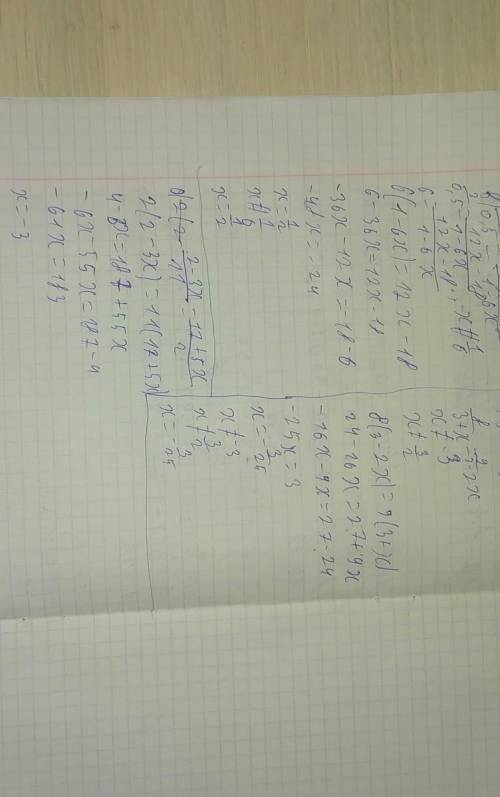 6(1-6x)=12x-18
6-36x=12x-18
-36x-12x=-18-6
-48x=-24
x=\frac{1}{2}
x≠\frac{1}{6}
x=2
\frac{2-3x}{11}=\frac{17+5x}{2}
2(2-3x)=11(17+5x)
4-6x=187+55x
-6x-55x=187-4
-61x=183
x=-3
\frac{8}{3+x}=\frac{9}{3-2x}
x≠-3
x≠\frac{3}{2}
8(3-2x)=9(3+x)
24-16x=27+9x
-16x-9x=27-24
-25x=3
x=-\frac{3}{25}
x≠-3
x≠\frac{3}{2}
x=-\frac{3}{25}